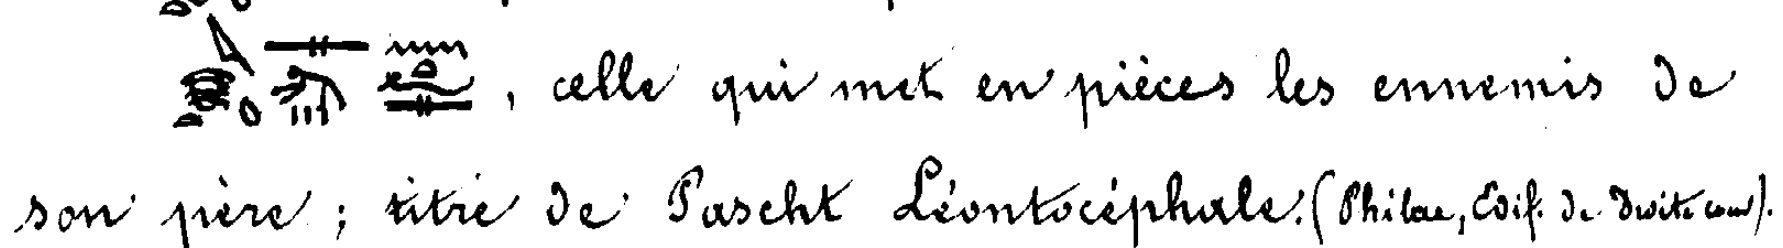 , celle qui met en pièces les ennemis de
son père ; titre de Pascht Léontocéphale. (Philae, Édif. de droite cour).